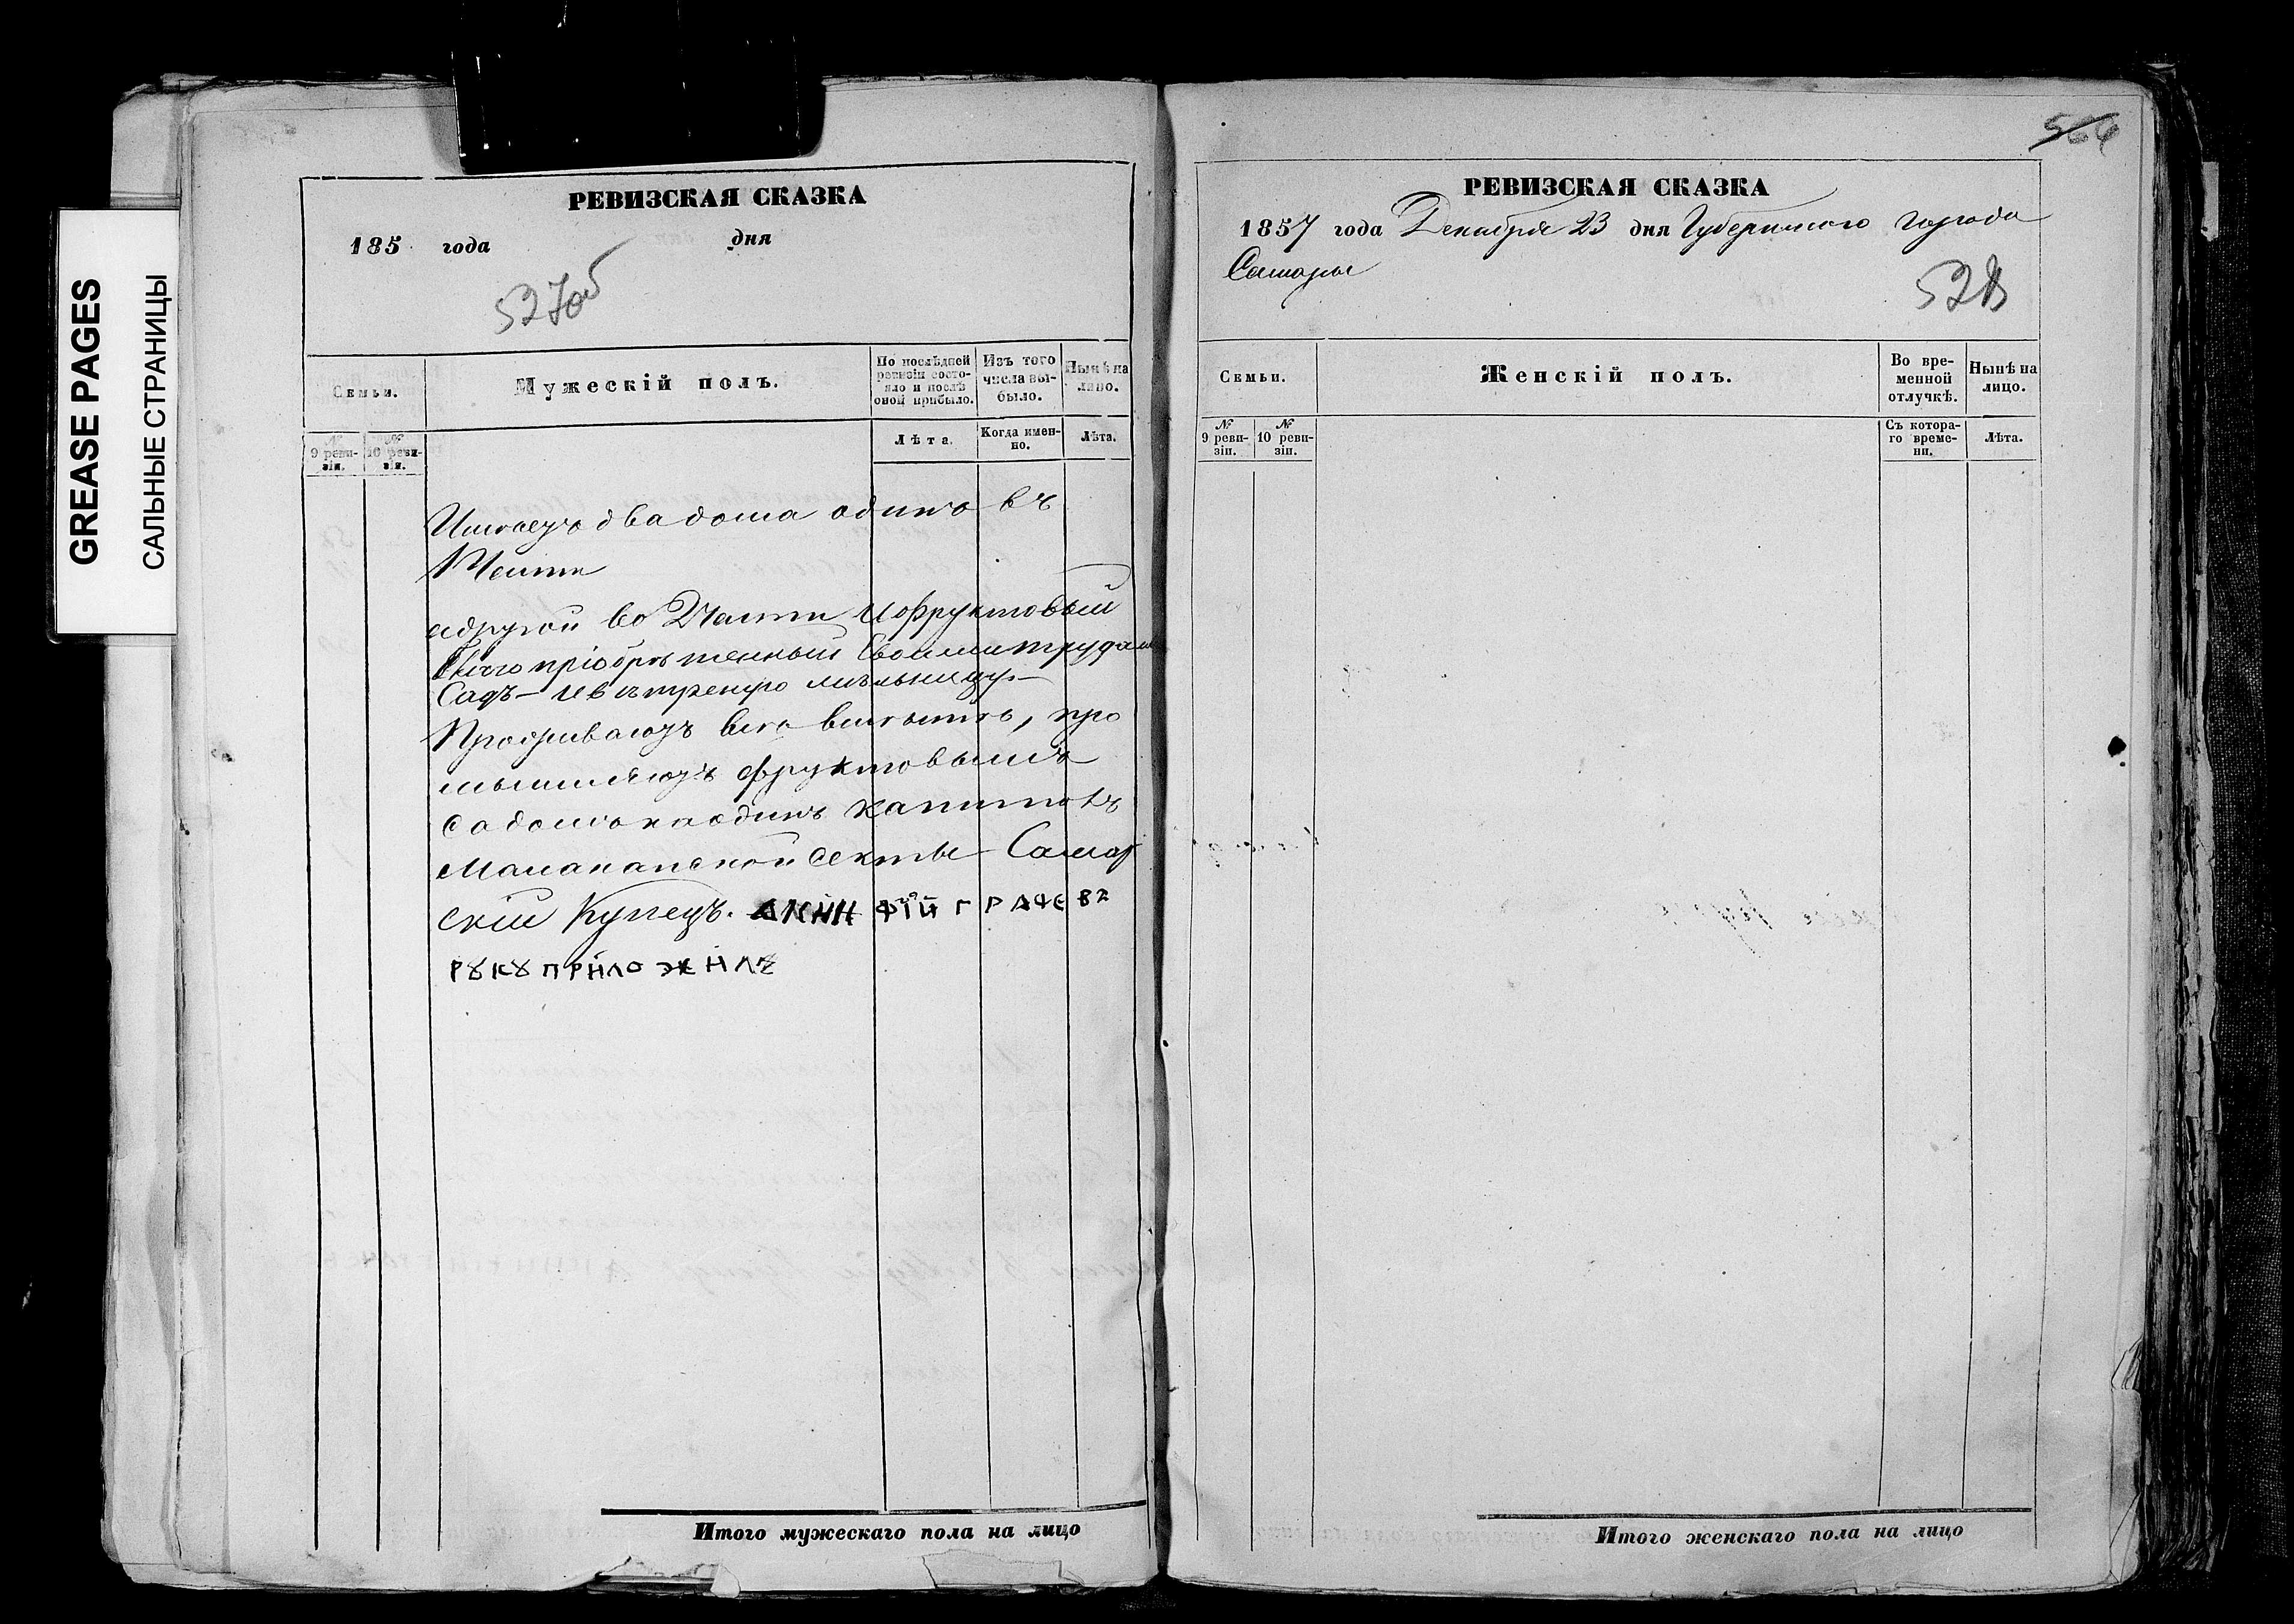 GREASE PAGES
САЛЬНЫЕ СТРАНИЦЫ
РЕВИЗСКАЯ СКАЗКА
185 года дня
527об
Семьи.
Мужескій полъ.
По послѣдней ревизіи состояло и послѣ оной прибыло.
Изъ того числа выбыло.
Нынѣ на лицо.
№ 9 ревизіи.
№ 10 ревизіи.
Лѣта.
Когда именно.
Лѣта.
Имѣетъ два дома одинъ въ
1 Части
а другой во 2 Части и фруктовый
приобрѣтенный своими трудами
Садъ — и вѣтреную мѣльницу —
Проживаютъ всѣ вмѣстѣ, про
мышляютъ фруктовымъ
садомъ на одинъ капиталъ
Малаканской секты — Самар
скій Купецъ. АКИНФІЙ ГРАЧЕВЪ
РꙊКꙊ ПРИЛОЖИЛЪ
Итого мужескаго пола на лицо
564
РЕВИЗСКАЯ СКАЗКА
1857 года Декабря 23 дня Губернского города
Самары
528
Семьи.
Женскій полъ.
Во временной отлучкѣ.
Нынѣ на лицо.
№ 9 ревизіи.
№ 10 ревизіи.
Съ котораго времени.
Лѣта.
Итого женскаго пола на лицо